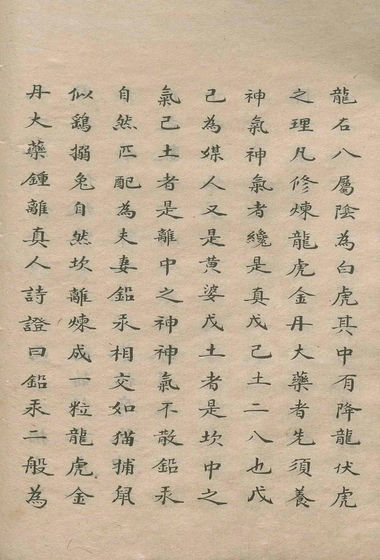 龍右八屬陰為白虎其中有降龍伏虎
之理凡修煉龍虎金丹大藥者先須養
神氣神氣者纔是真戊己土二八也戊
己為媒人又是黃婆戊土者是坎中之
氣己土者是離中之神神氣不散鉛汞
自然匹配為夫妻鉛汞相交如猫捕鼠
似鷂搦兔自然坎離煉成一粒龍虎金
丹大藥鍾離真人詩證曰鉛汞二般為